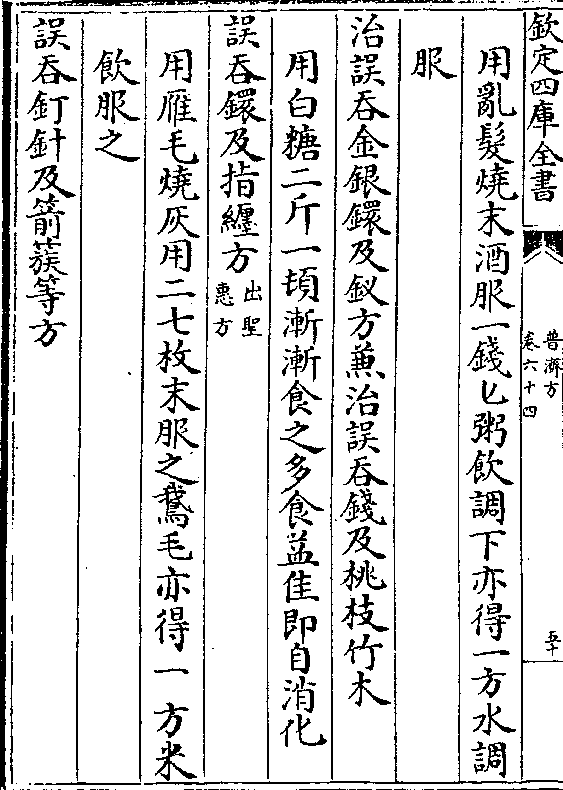 欽定四庫全書
普濟方
卷六十四
五十
用亂髮燒末酒服一錢匕粥飲調下亦得一方水調
服
治誤吞金銀鐶及釵方兼治誤吞錢及桃枝竹木
用白糖二斤一頓漸漸食之多食益佳即自消化
誤吞鐶及指纏方出聖惠方
用雁毛燒灰用二七枚末服之鵞毛亦得一方米
飲服之
誤吞釘針及箭簇等方